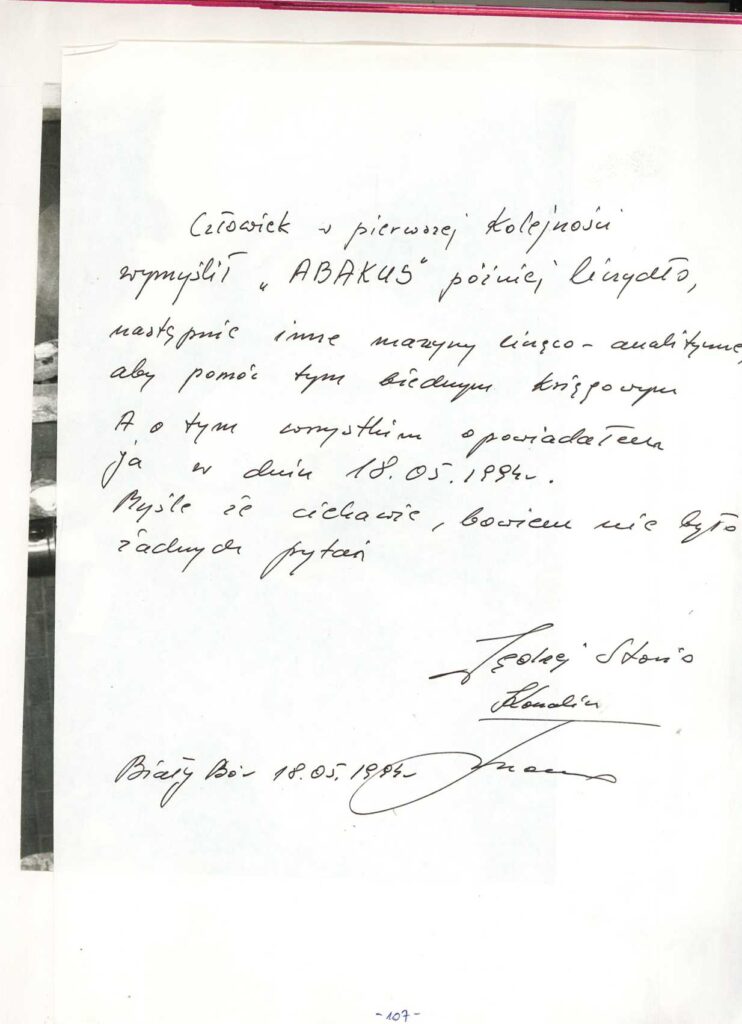 Człowiek w pierwszej kolejności
wymyślił „ABAKUS" później liczydło,
następnie inne maszyny licząco-analityczne,
aby pomóc tym biednym księgowym
A o tym wszystkim opowiadałem
ja w dniu 18.05.1994r.
Myślę że ciekawie, bowiem nie było
żadnych pytań
Jędrzej
Koszalin
Biały Bór 18.05.1994r
-107-